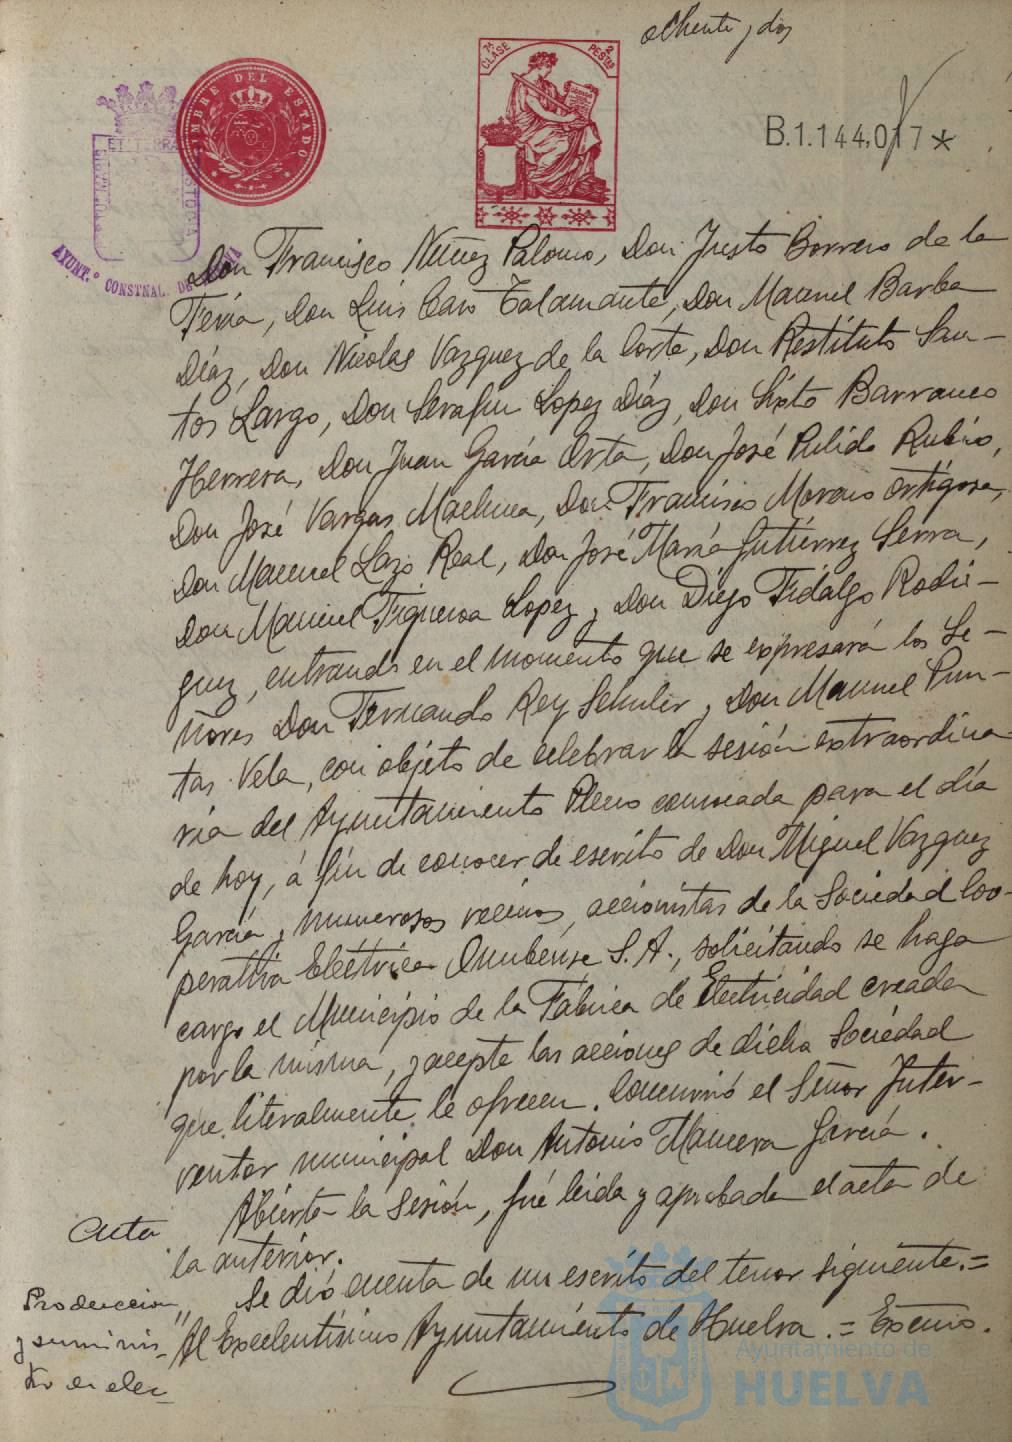 ochenta y dos
7ª CLASE
2 PESTAS
TIMBRE DEL ESTADO
B.1.144,017*
AYUNT.º CONSTNAL. DE
Don Francisco Núñez Palomo, Don Justo Borrero de la
Feria, Don Luis Caro Talamante, Don Manuel Barba
Díaz, Don Nicolas Vazquez de la Corte, Don Restituto San-
tos Largo, Don Serafin Lopez Díaz, Don Sixto Barranco
Herrera, Don Juan García Orta, Don José Pulido Rubio,
Don José Vargas Machuca, Don Francisco Moreno Ortigosa,
Don Manuel Lazo Real, Don José María Gutiérrez Serra,
Don Manuel Figueroa Lopez y Don Diego Fidalgo Rodri-
guez, entrando en el momento que se expresará los Se-
ñores Don Fernando Rey Schuler y Don Manuel Pun-
tas Vela, con objeto de celebrar la sesión extraordina
ria del Ayuntamiento Pleno convocada para el día
de hoy, á fin de conocer de escrito de Don Miguel Vazquez
García y numerosos vecinos, accionistas de la Sociedad Coo-
perativa Electrica Onubense S. A., solicitando se haga
cargo el Municipio de la Fábrica de Electricidad creada
por la misma, y acepte las acciones de dicha Sociedad
que literalmente le ofrecen. Concurrió el Señor Inter-
ventor municipal Don Antonio Mancera García.
Abierta la sesión, fué leida y aprobada el acta de
Acta
la anterior.
Se dió cuenta de un escrito del tenor siguiente.=
Produccion
y suminis-
tro de elec-
"Al Excelentísimo Ayuntamiento de Huelva.= Excmo.
Ayuntamiento de
HUELVA